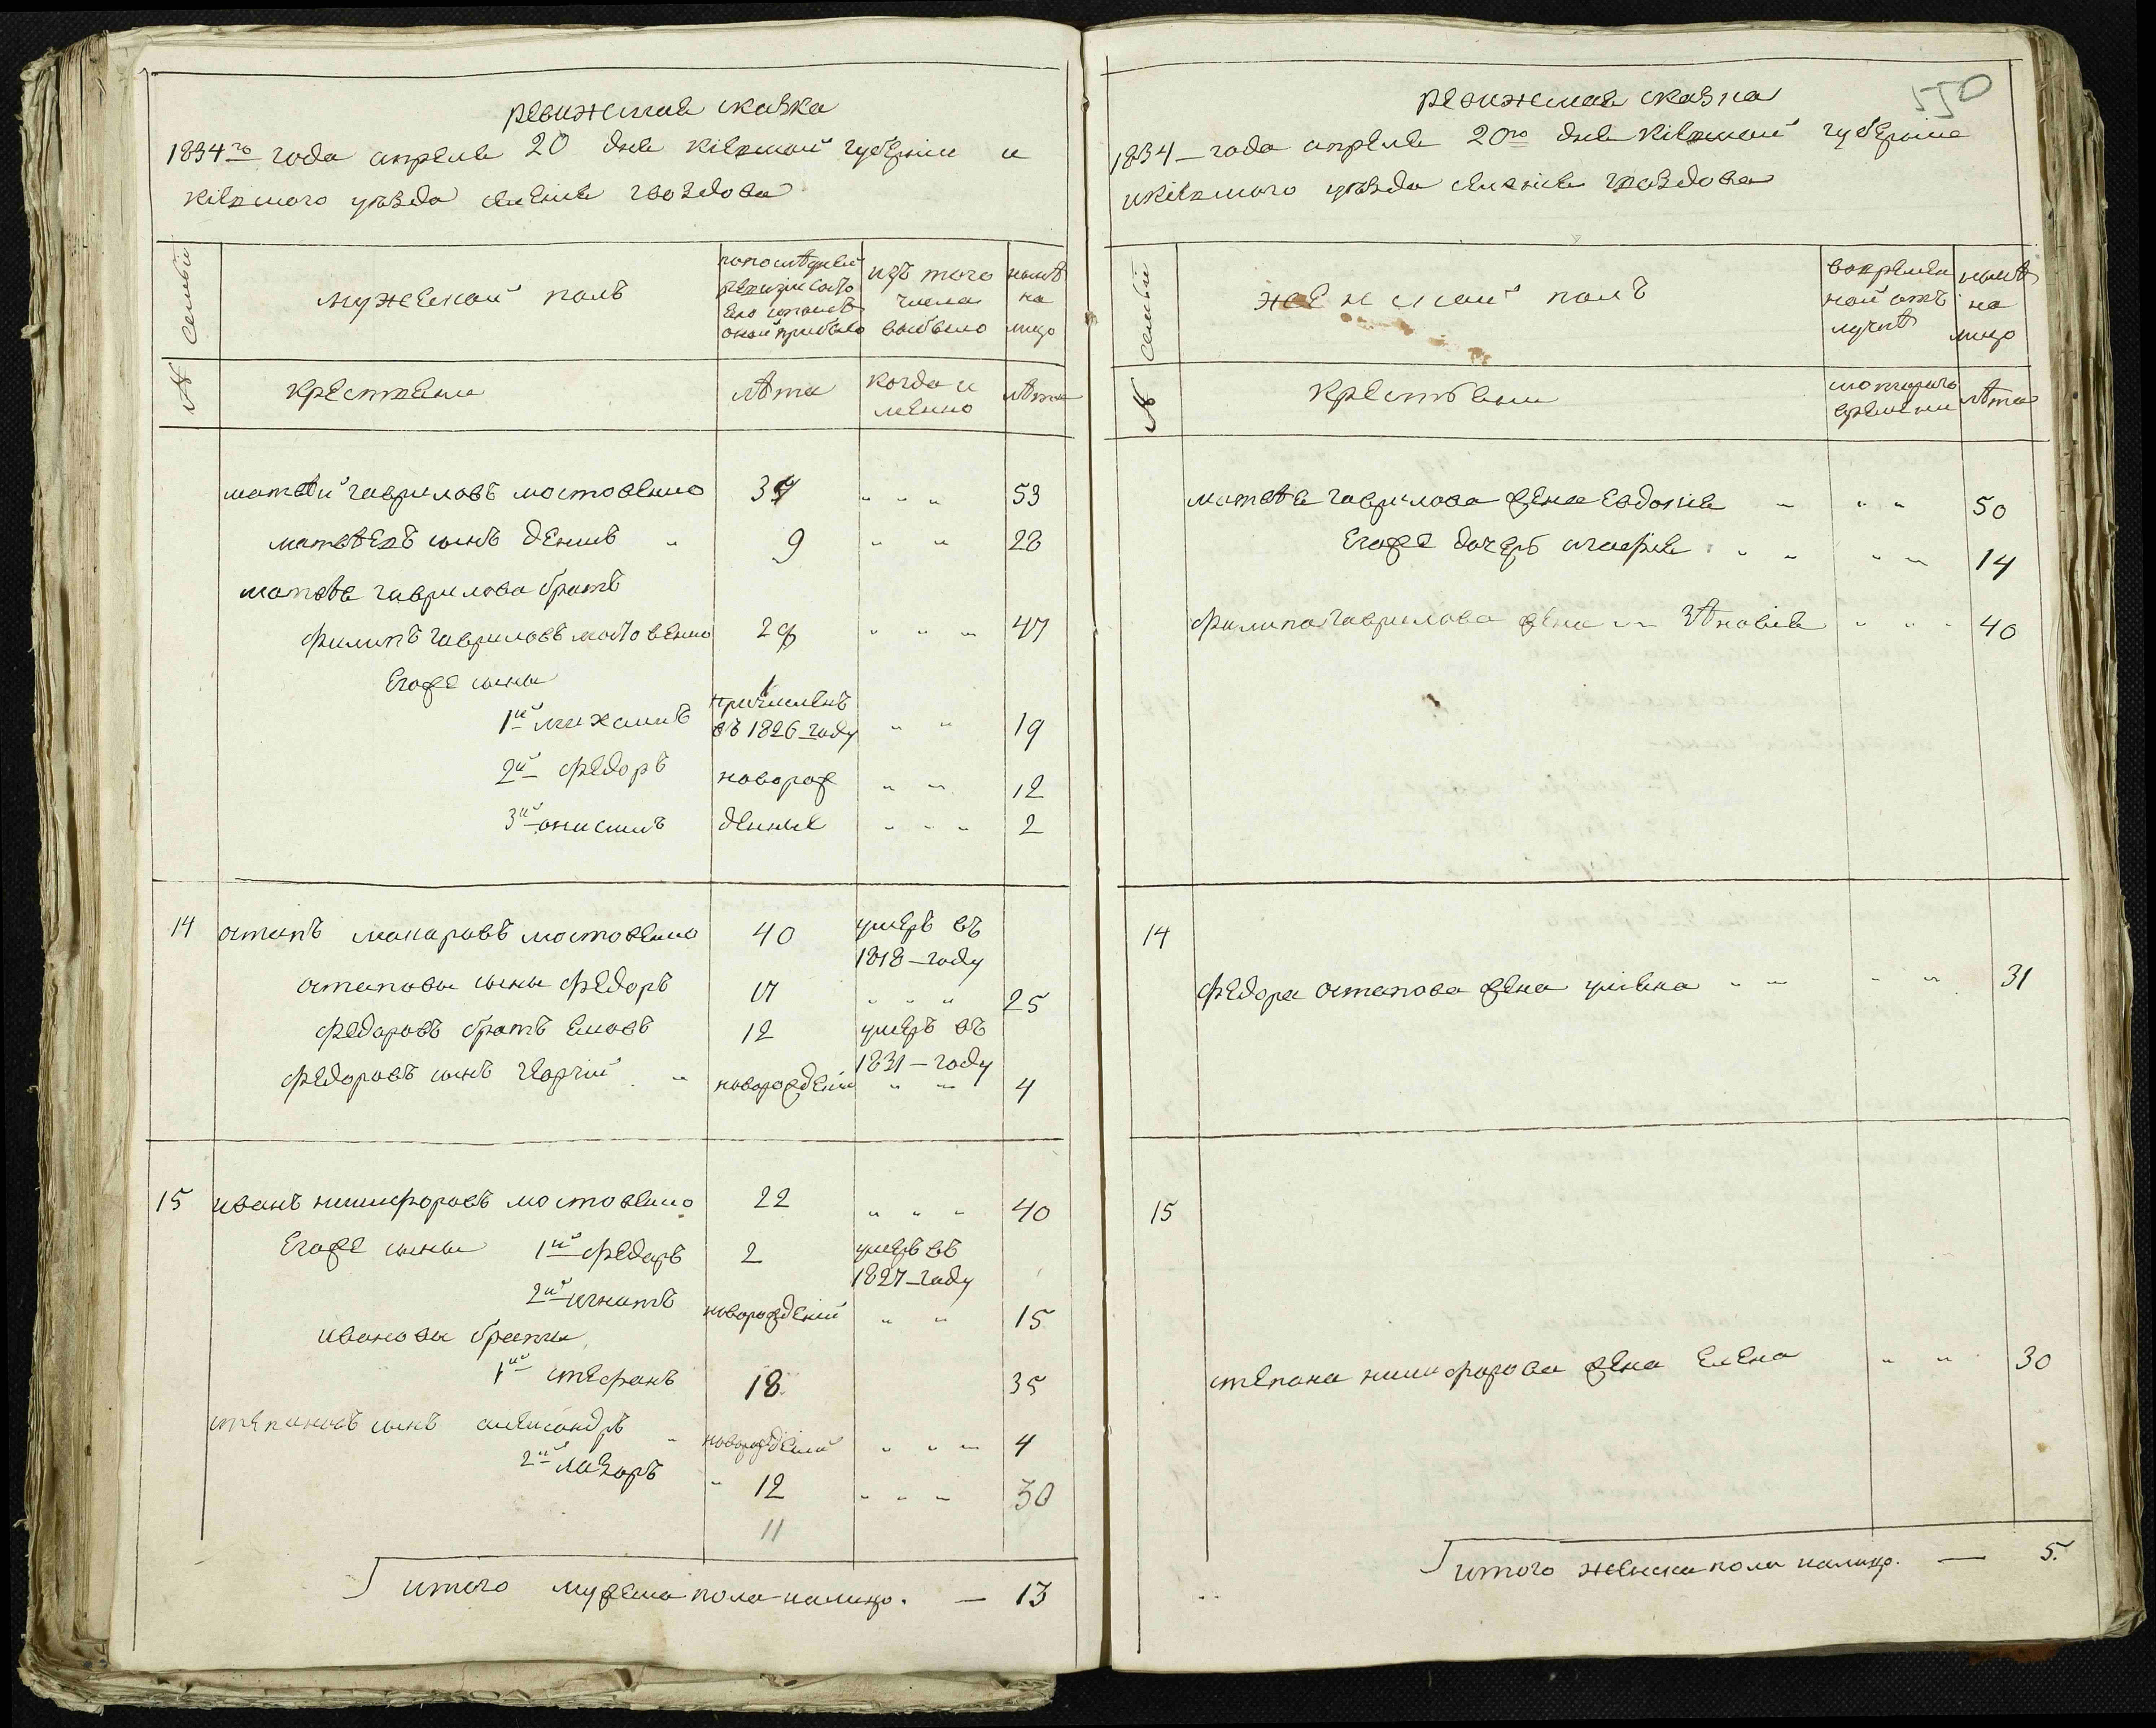 ревижская сказка
1834го года апреля 20 дня Кіевской губерніи и
Кіевского уѣзда селенія гвоздова
№ семьи
мужеской полъ
по последней ревизіи состояло и после оной прибыло
изъ того числа выбыло
ныне на лицо
крестьяне
лѣта
когда именно
лѣта
матвѣй гавриловъ мостовенко 34 " " " 53
матвѣевъ сынъ денисъ " 9 " " 28
матвѣя гаврилова братъ
филипъ гавриловъ мостовенко 28 " " " 47
Егоже сыны
1й михаилъ причисленъ въ 1826 году " " 19
2й федоръ новорож " " 12
3й онисимъ денные " " " 2
14 остапъ макаровъ мостовенко 40 умеръ въ 1818 году
остаповы сыны федоръ 17 " " " 25
федоровъ братъ 12 умеръ въ 1831 году
федоровъ сынъ георгій " новорожденій " " 4
15 иванъ никифоровъ мостовенко 22 " " " 40
Егоже сыны 1й федоръ 2 умеръ въ 1827 году
2й игнатъ новорожденій " " 15
ивановы братья
1й стефанъ 18 35
степановъ сынъ александръ " новорожденій " " " 4
2й лазоръ " 12 " " " 30
11
итого мужеска пола налицо. — 13
550
ревижская сказка
1834 года апреля 20го дня Кіевской губерніи
и Кіевского уѣзда селенія гвоздова
№ семьи
женской полъ
во временной отлучке
ныне на лицо
крестьяне
с которого времени
лѣта
матвѣя гаврилова жена евдокія " " " 50
Егоже дочерь агафія " " " " 14
филипа гаврилова жена " зѣновія " " " 40
14
федора остапова жена уліяна " " " " 31
15
степана никифорова жена елена " " 30
итого женска пола налицо. — 5.